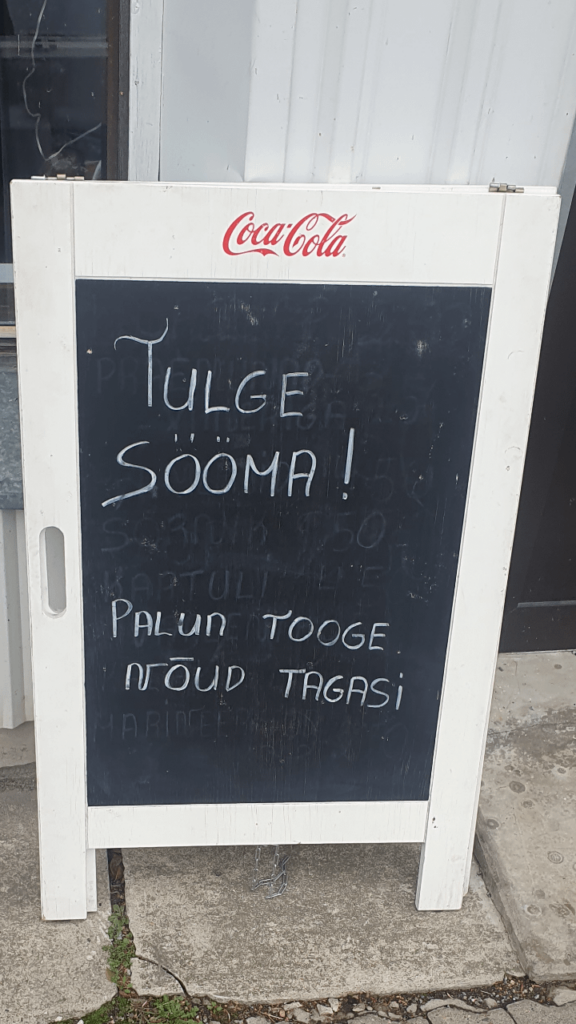 Coca-Cola
TULGE
SÖÖMA!
PALUN TOOGE
NÕUD TAGASI